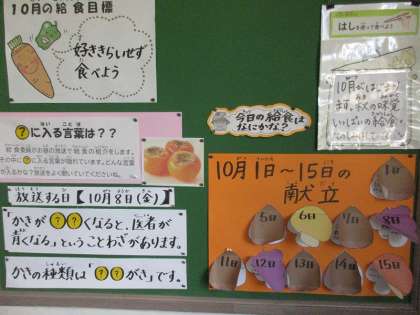 10月の給食目標
好ききらいせず
食べよう
?に入る言葉は??
放送する日【10月8日(金)】
「かきが??くなると、医者が
青くなる」ということわざがあります。
かきの種類は「??がき」です。
今日の給食は
なにかな?
10月1日～15日の
献立
1日
5日
6日
7日
8日
11日
12日
13日
14日
15日
はしを使って食べよう
10月がはじまり
ます。秋の味覚
いっぱいの給食